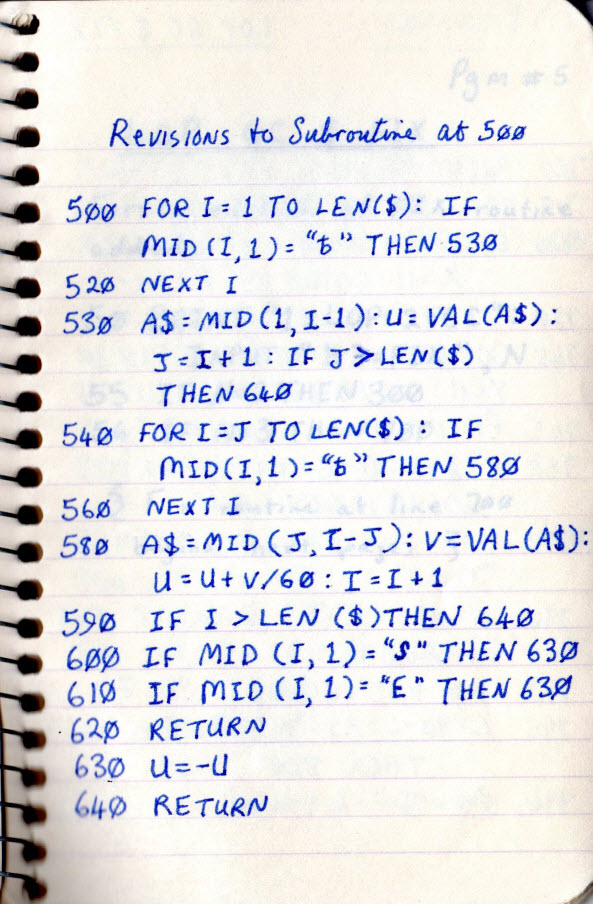 Pgm # 5
Revisions to Subroutine at 500
500 FOR I = 1 TO LEN($): IF
MID (I,1) = "ƀ" THEN 530
520 NEXT I
530 A$ = MID(1, I-1): U = VAL(A$):
J = I + 1 : IF J > LEN($)
THEN 640
540 FOR I = J TO LEN($) : IF
MID(I,1) = "ƀ" THEN 580
560 NEXT I
580 A$ = MID(J, I-J): V = VAL(A$):
U = U + V/60 : I = I + 1
590 IF I > LEN ($) THEN 640
600 IF MID (I, 1) = "S" THEN 630
610 IF MID (I, 1) = "E" THEN 630
620 RETURN
630 U = -U
640 RETURN